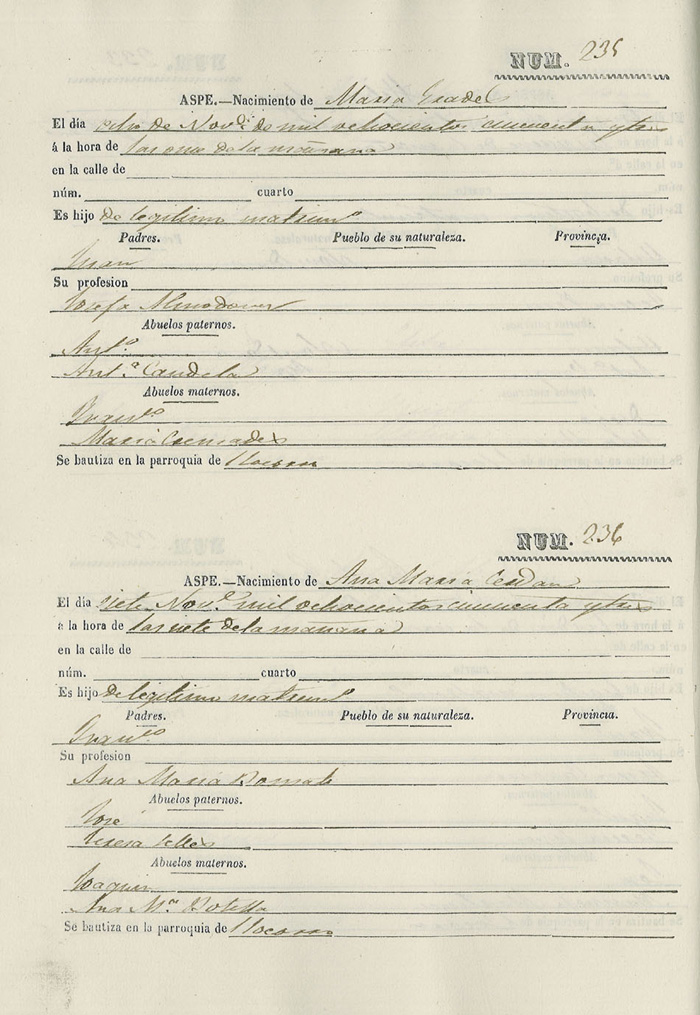 NUM. 235
ASPE.—Nacimiento de Maria Gradel
El dia ocho de Nov.e de mil ochocientos cincuenta y tres
á la hora de las once de la mañana
en la calle de
núm. cuarto
Es hijo de legitimo matrim.o
Padres. Pueblo de su naturaleza. Provincia.
Juan
Su profesion
Josefa Almodovar
Abuelos paternos.
Ant.o
Ant.a Candela
Abuelos maternos.
Fran.co
Maria Cremades
Se bautiza en la parroquia de
NUM. 236
ASPE.—Nacimiento de Ana Maria Cerdan
El dia siete Nov.e mil ochocientos cincuenta y tres
á la hora de las siete de la mañana
en la calle de
núm. cuarto
Es hijo de legitimo matrim.o
Padres. Pueblo de su naturaleza. Provincia.
Fran.co
Su profesion
Ana Maria
Abuelos paternos.
José
Teresa Selles
Abuelos maternos.
Joaquin
Ana M.a Botella
Se bautiza en la parroquia de